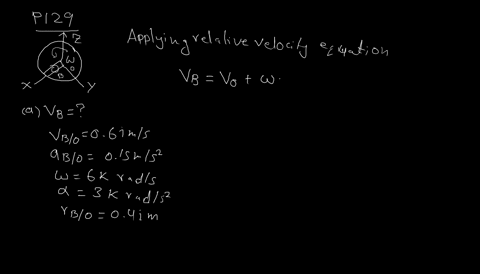 P129
Z
ω
O
B
X
Y
Applying relative velocity equation
V_B = V_O + ω·
(a) V_B = ?
V_B/O = 0.6 i m/s
a_B/O = 0.15 m/s²
ω = 6 K rad/s
α = 3 K rad/s²
r_B/O = 0.4 i m